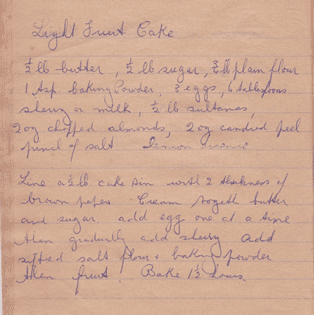 Light Fruit Cake
½ lb butter, ½ lb sugar, ¾ lb plain flour
1 tsp baking Powder, eggs, 6 tablespoons
sherry or milk, ½ lb sultanas,
2 oz chopped almonds, 2 oz candied peel
pinch of salt lemon essence
Line a ½ lb cake tin with 2 thickness of
brown paper. Cream together butter
and sugar. add egg one at a time
then gradually add sherry add
sifted salt flour & baking powder
then fruit. Bake 1½ hours.